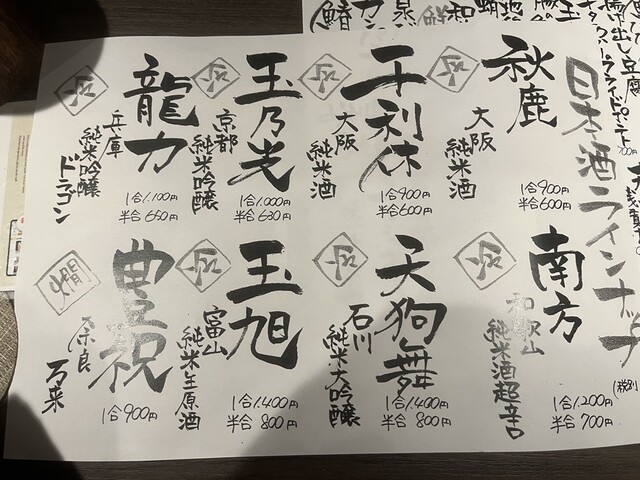 日本酒ラインナップ
(税別)
秋鹿
大阪
純米酒
1合900円
半合600円
千利休
大阪
純米酒
1合900円
半合600円
玉乃光
京都
純米吟醸
1合1,000円
半合630円
龍力
兵庫
純米吟醸
ドラゴン
1合1,100円
半合650円
南方
和歌山
純米酒超辛口
1合1,200円
半合700円
天狗舞
石川
純米大吟醸
1合1,400円
半合800円
玉旭
富山
純米生原酒
1合1,400円
半合800円
燗
豊祝
奈良
万来
1合900円